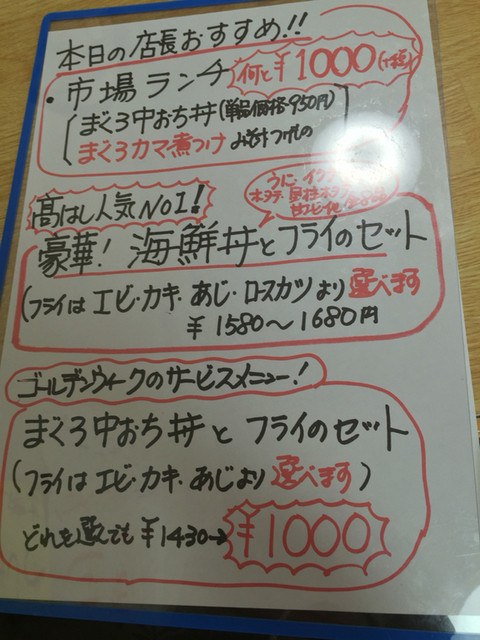 本日の店長おすすめ!!
・市場ランチ 何と¥1000
まぐろ中おち丼(単品価格・950円)
まぐろカマ煮つけ みそ汁つけもの
高はし人気NO1!
うに・イクラ
ホタテ
甘エビ 他
豪華!海鮮丼とフライのセット
(フライはエビ・カキ・あじ・ロースカツより選べます
¥1580〜1680円
ゴールデンウィークのサービスメニュー!
まぐろ中おち丼とフライのセット
(フライはエビ・カキ・あじより選べます)
どれを選んでも¥1430→¥1000